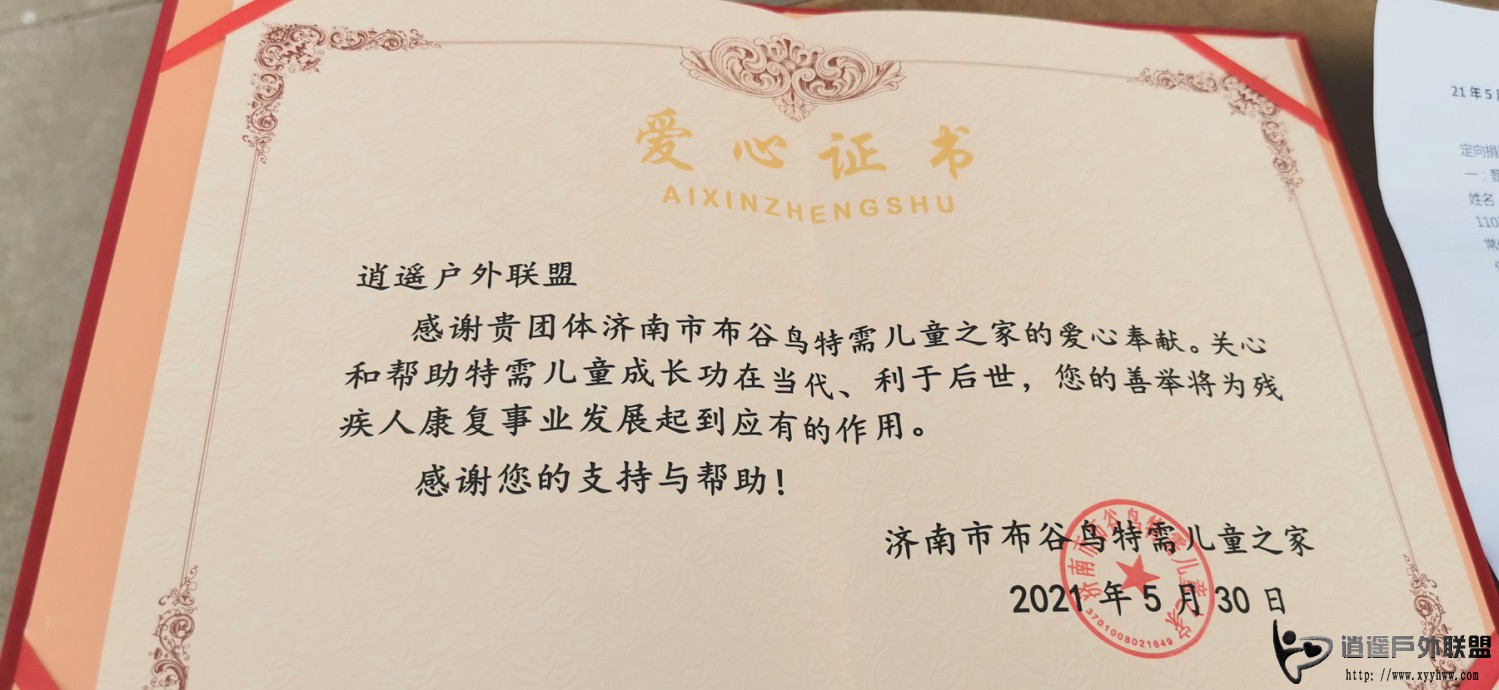 爱心证书
AIXINZHENGSHU
逍遥户外联盟
感谢贵团体济南市布谷鸟特需儿童之家的爱心奉献。关心
和帮助特需儿童成长功在当代、利于后世，您的善举将为残
疾人康复事业发展起到应有的作用。
感谢您的支持与帮助！
济南市布谷鸟特需儿童之家
2021年5月30日
济南市布谷鸟特需儿童之家
3701008021649
21年5月
定向捐
一：
姓名
110
逍遥戶外联盟
http: //www.xyyhww.com